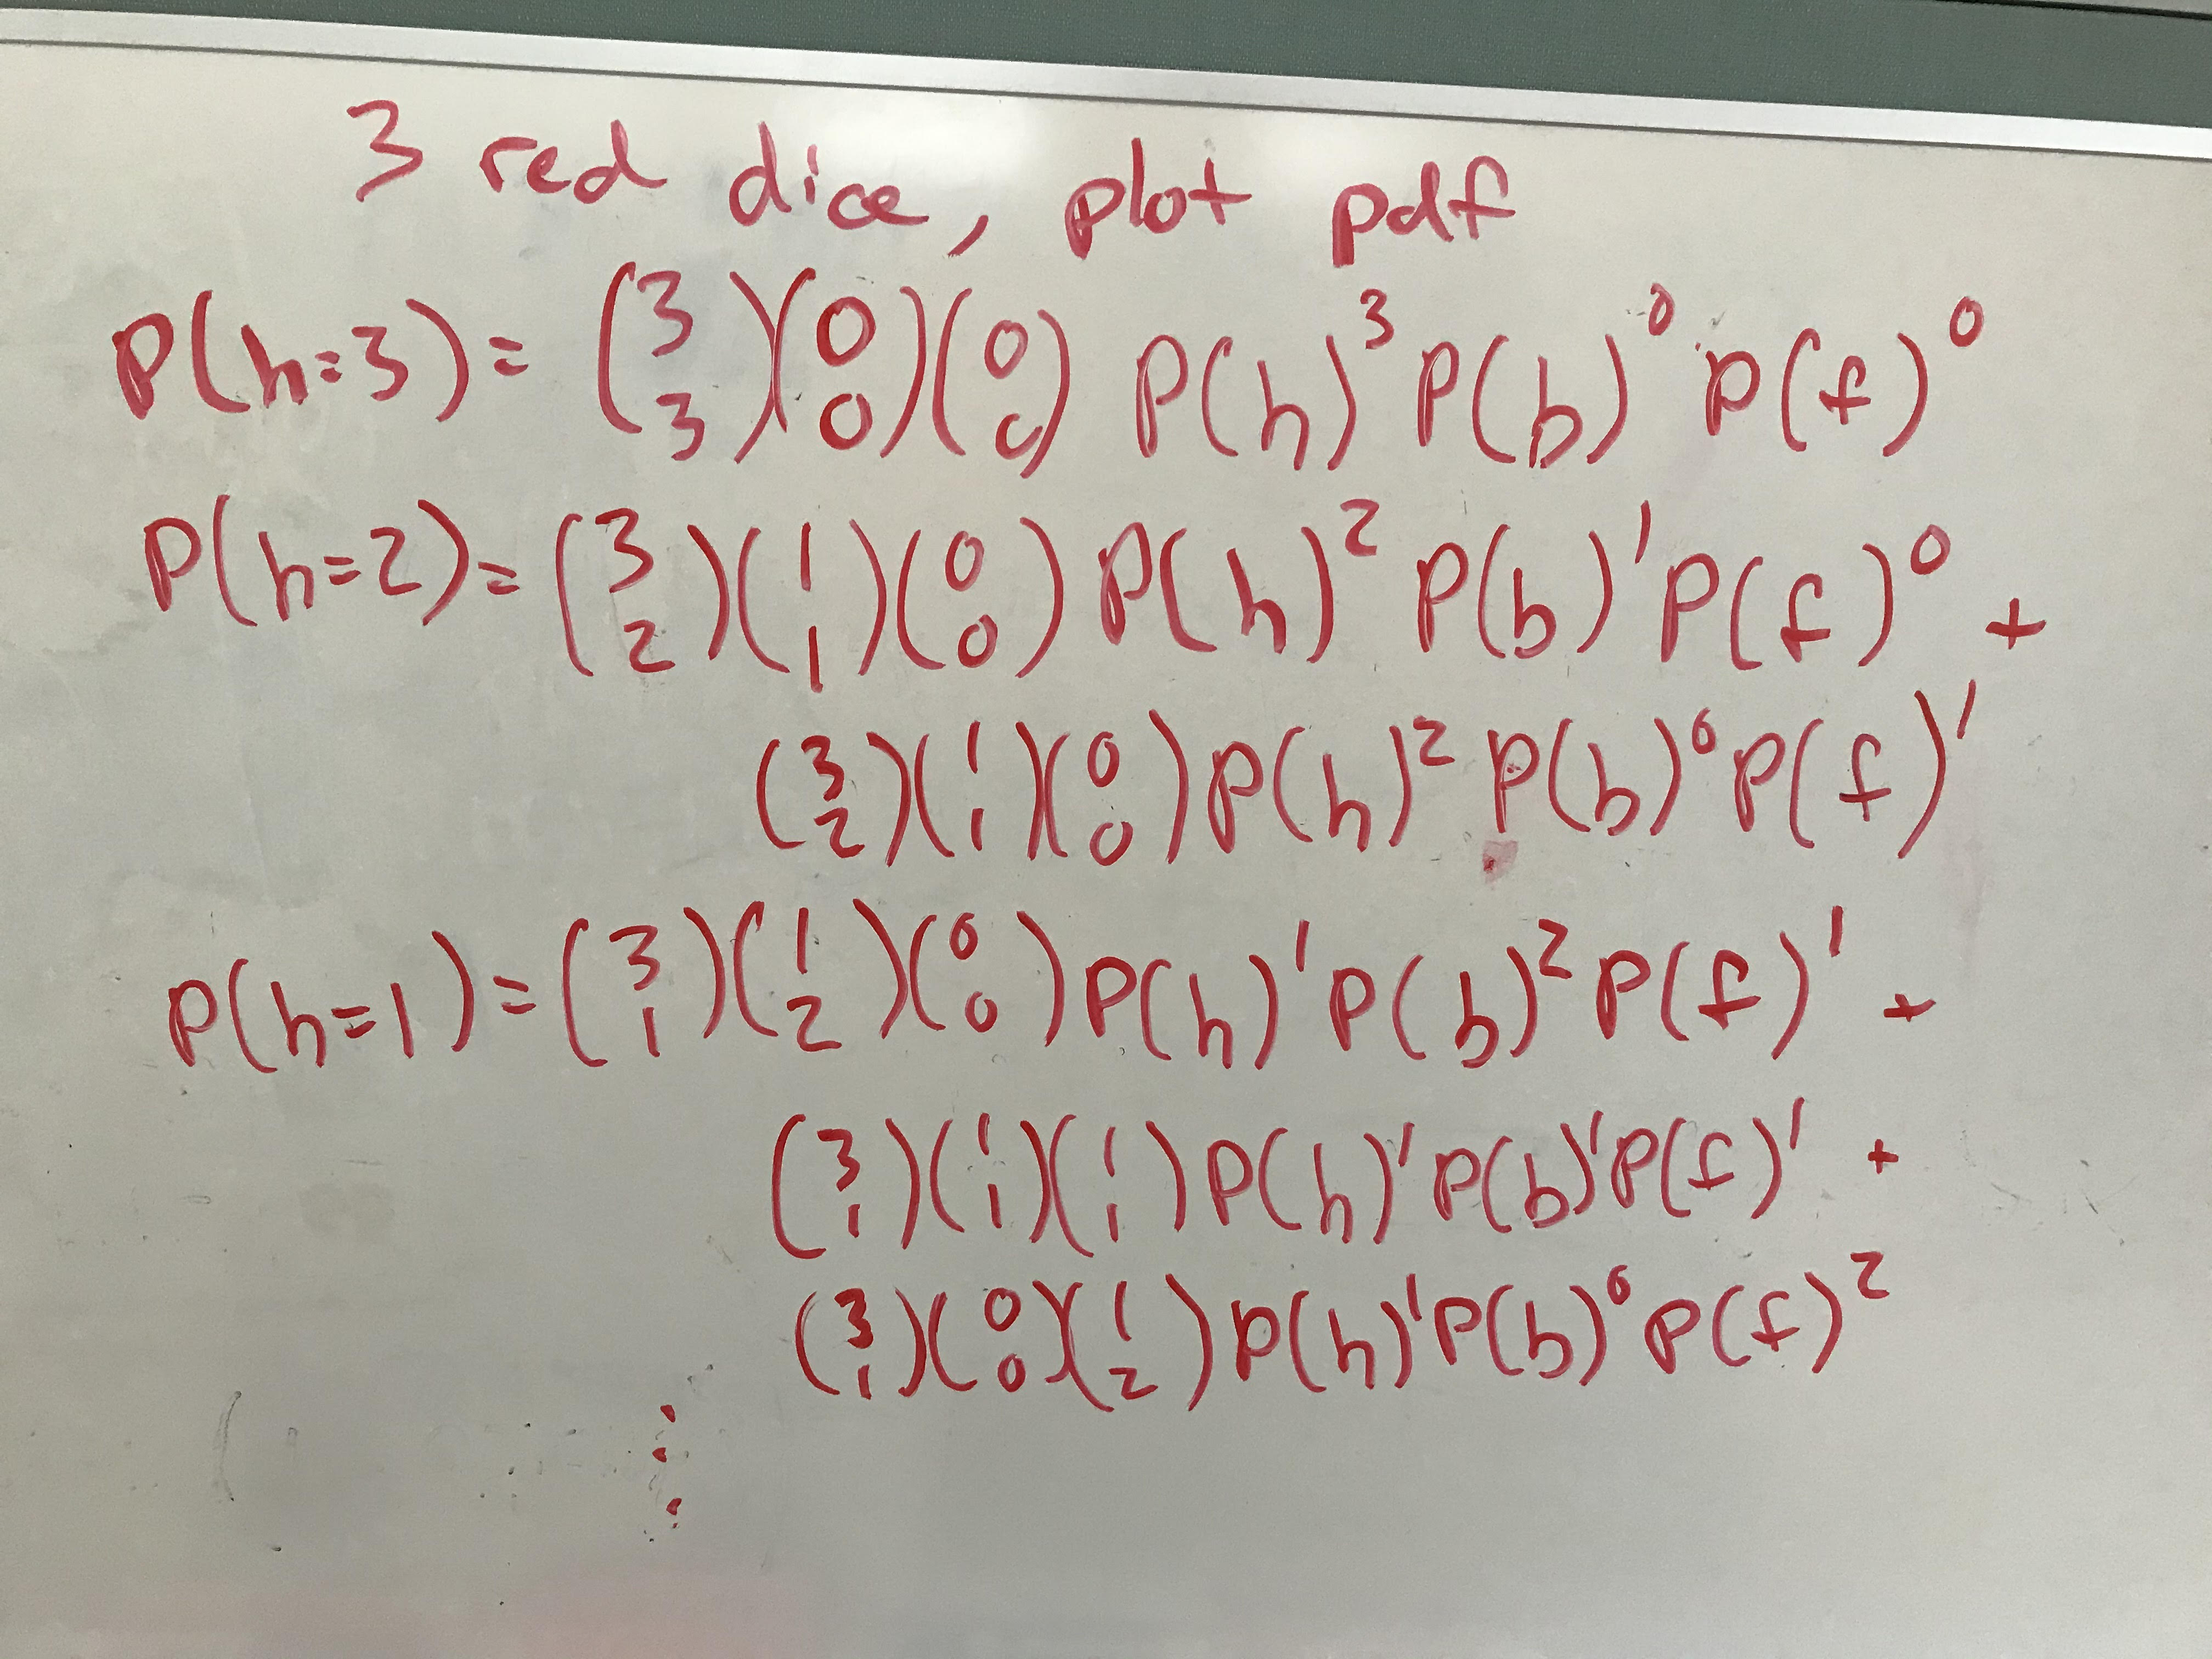 3 red dice, plot pdf
P(h=3) = (3 3)(0 0)(0 0) P(h)^3 P(b)^0 P(f)^0
P(h=2) = (3 2)(1 1)(0 0) P(h)^2 P(b)^1 P(f)^0 +
(3 2)(1 1)(0 0) P(h)^2 P(b)^0 P(f)^1
P(h=1) = (3 1)(1 2)(0 0) P(h)^1 P(b)^2 P(f)^1 +
(3 1)(1 1)(1 1) P(h)^1 P(b)^1 P(f)^1 +
(3 1)(0 0)(1 2) P(h)^1 P(b)^0 P(f)^2
⋮